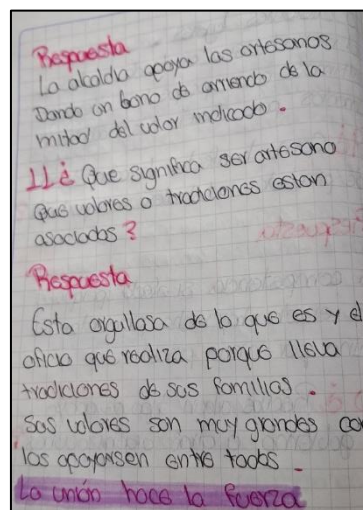 Respuesta
La alcaldia apoya las artesanos
Dando un bono de arriendo de la
mitad del valor indicado.
11¿ Que significa ser artesano
Que valores o tradiciones estan
asociados?
Respuesta
Esta orgullosa de lo que es y el
oficio que realiza porque lleva
tradiciones de sus familias.
Sus valores son muy grandes co
los apoyarsen entre todos.
La unión hace la fuerza